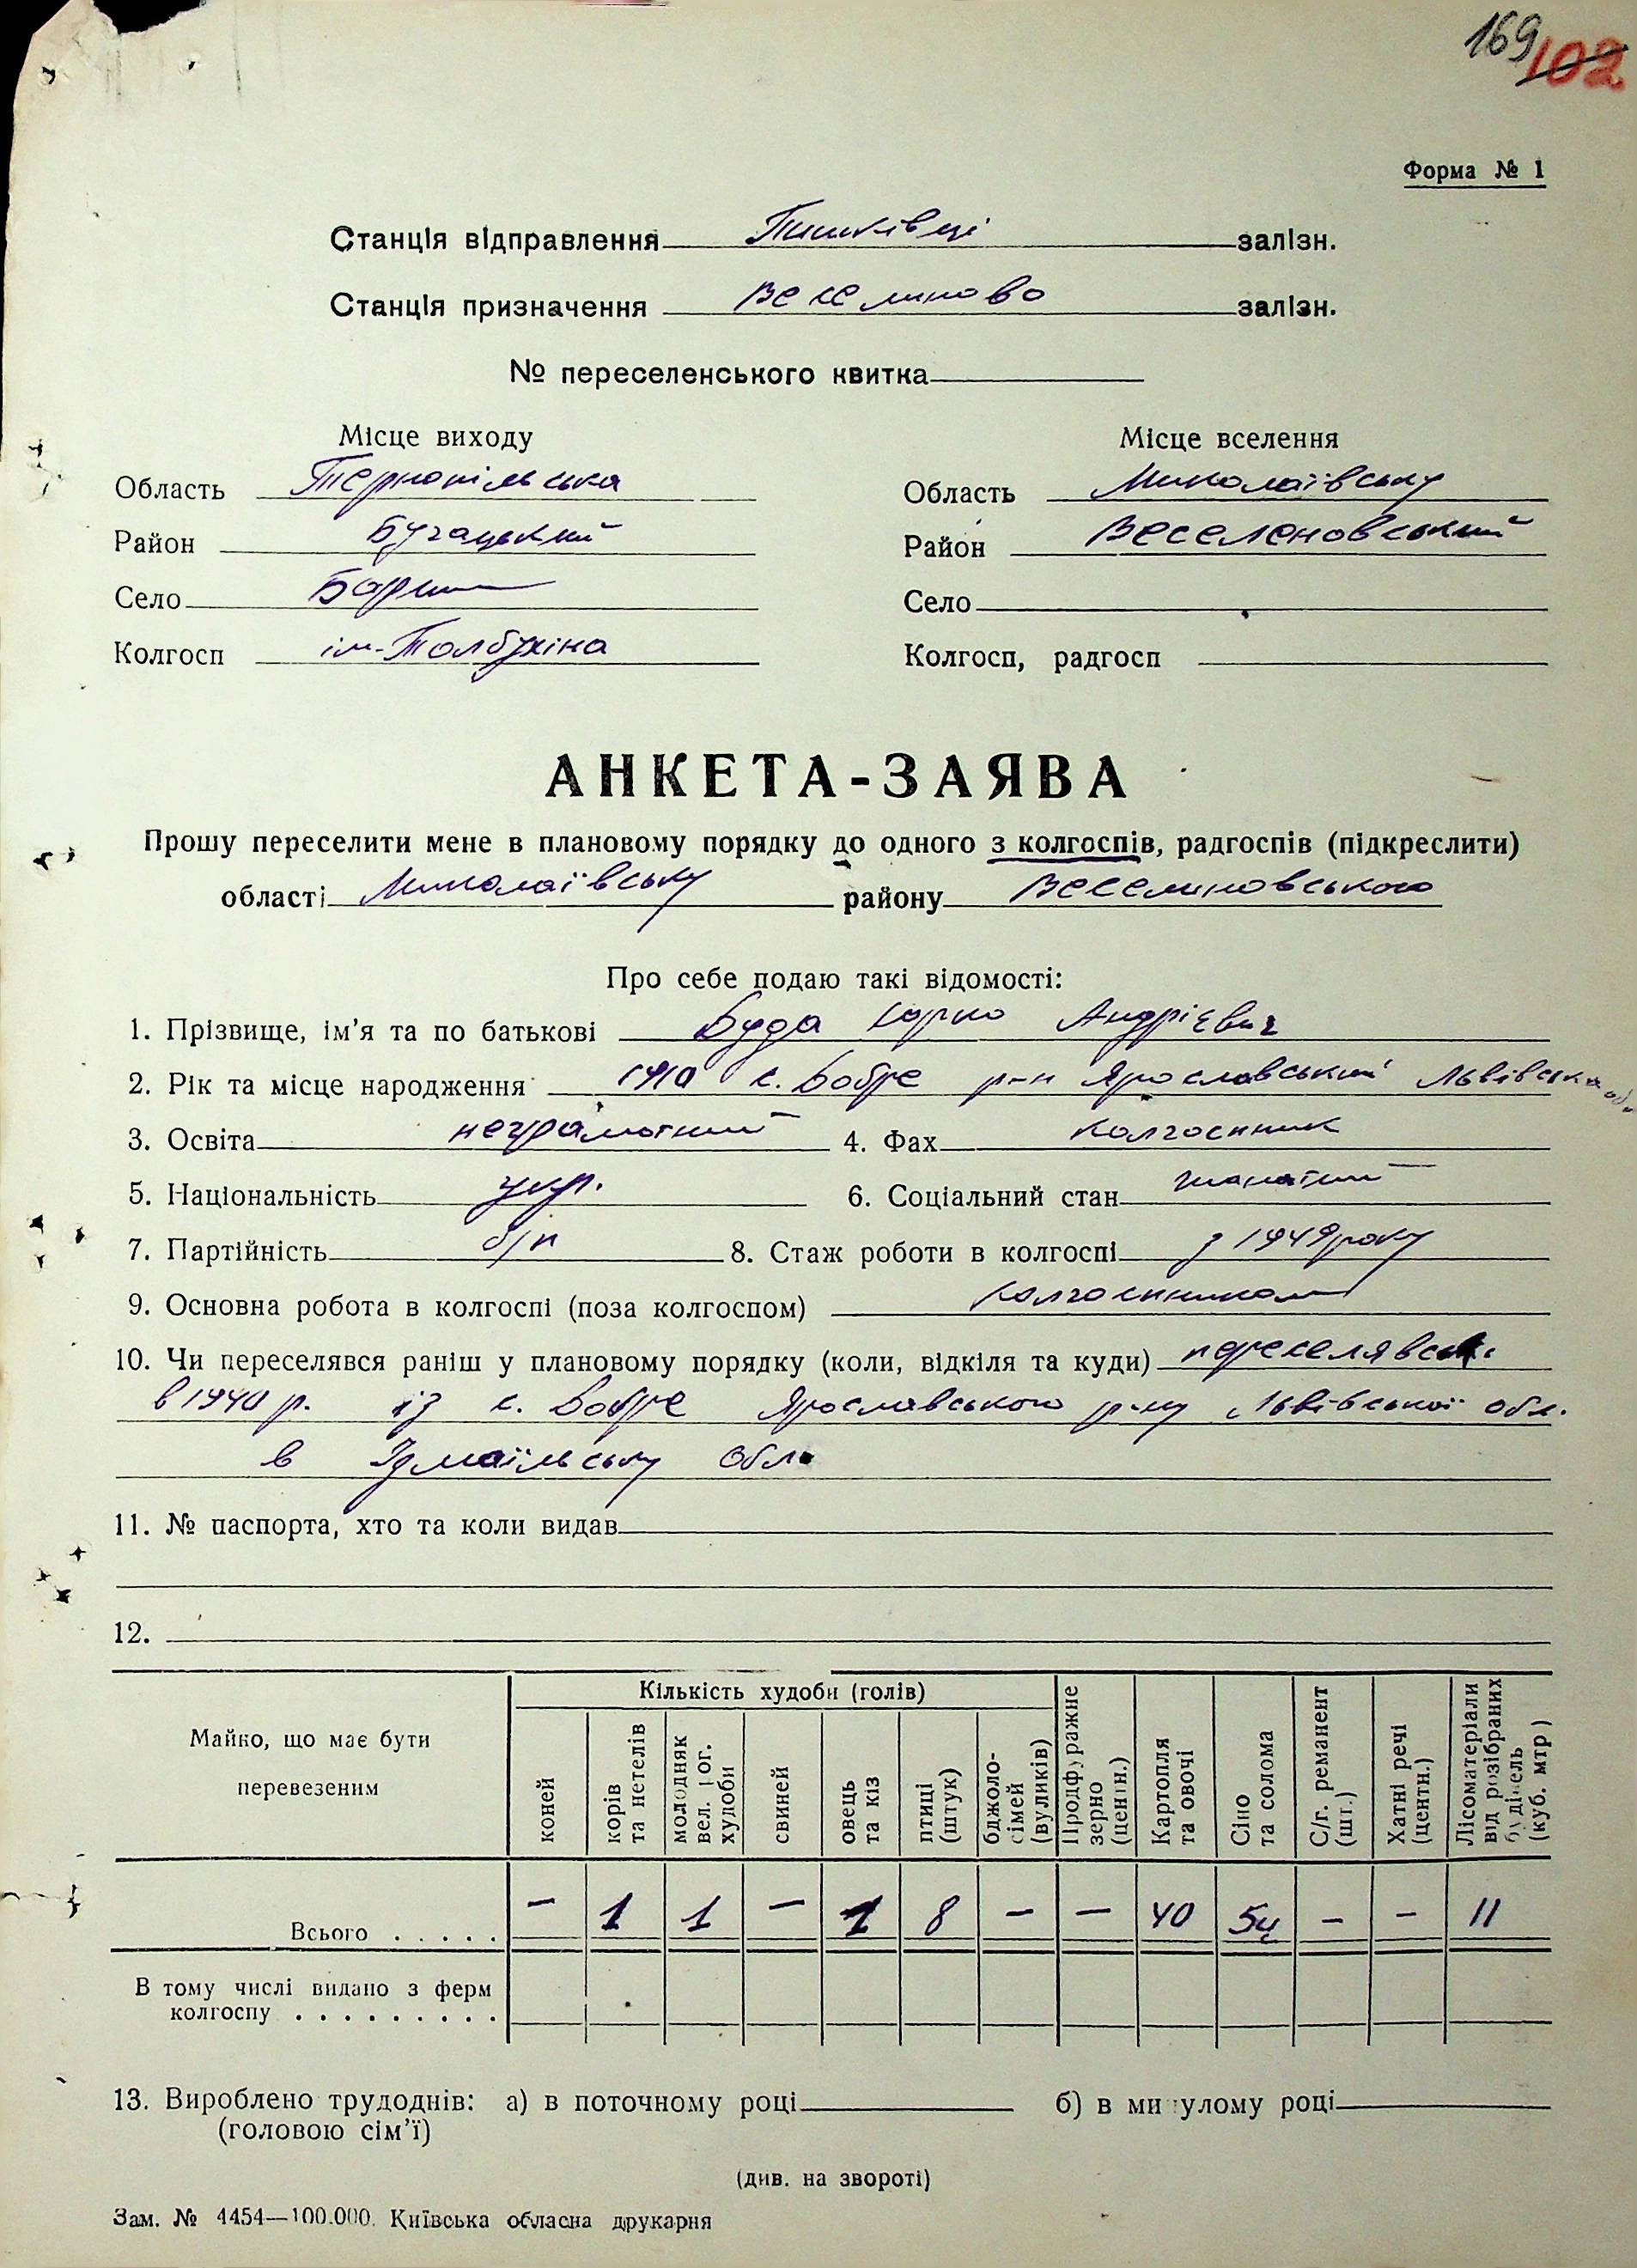 169 102
Форма № 1
Станція відправлення Пишківці залізн.
Станція призначення Веселиново залізн.
№ переселенського квитка
Місце виходу Місце вселення
Область Тернопільська Область Миколаївську
Район Бучацький Район Веселеновський
Село Бариш Село
Колгосп ім. Толбухіна Колгосп, радгосп
АНКЕТА-ЗАЯВА
Прошу переселити мене в плановому порядку до одного з колгоспів, радгоспів (підкреслити)
області Миколаївську району Веселиновського
Про себе подаю такі відомості:
1. Прізвище, ім'я та по батькові Буда Юрко Андрієвич
2. Рік та місце народження 1910 с. Бобре р-н Ярославський Львівська обл.
3. Освіта неграмотний 4. Фах колгоспник
5. Національність укр. 6. Соціальний стан
7. Партійність б/п 8. Стаж роботи в колгоспі з 1949 року
9. Основна робота в колгоспі (поза колгоспом) колгоспником
10. Чи переселявся раніш у плановому порядку (коли, відкіля та куди) переселявсь
в 1940 р. із с. Бобре Ярославського р-ну Львівської обл.
в Ізмаїльську обл.
11. № паспорта, хто та коли видав
12.
Майно, що має бути перевезеним
Кількість худоби (голів)
коней
корів та нетелів
молодняк вел. рог. худоби
свиней
овець та кіз
птиці (штук)
бджоло-сімей (вуликів)
Продфуражне зерно (центн.)
Картопля та овочі
Сіно та солома
С/г. реманент (шт.)
Хатні речі (центн.)
Лісоматеріали від розібраних будівель (куб. мтр)
Всього . . . . . – 1 1 – 1 8 – – 40 5ц – – 11
В тому числі видано з ферм
колгоспу . . . . . . . . .
13. Вироблено трудоднів: а) в поточному році б) в минулому році
(головою сім'ї)
(див. на звороті)
Зам. № 4454—100.000. Київська обласна друкарня